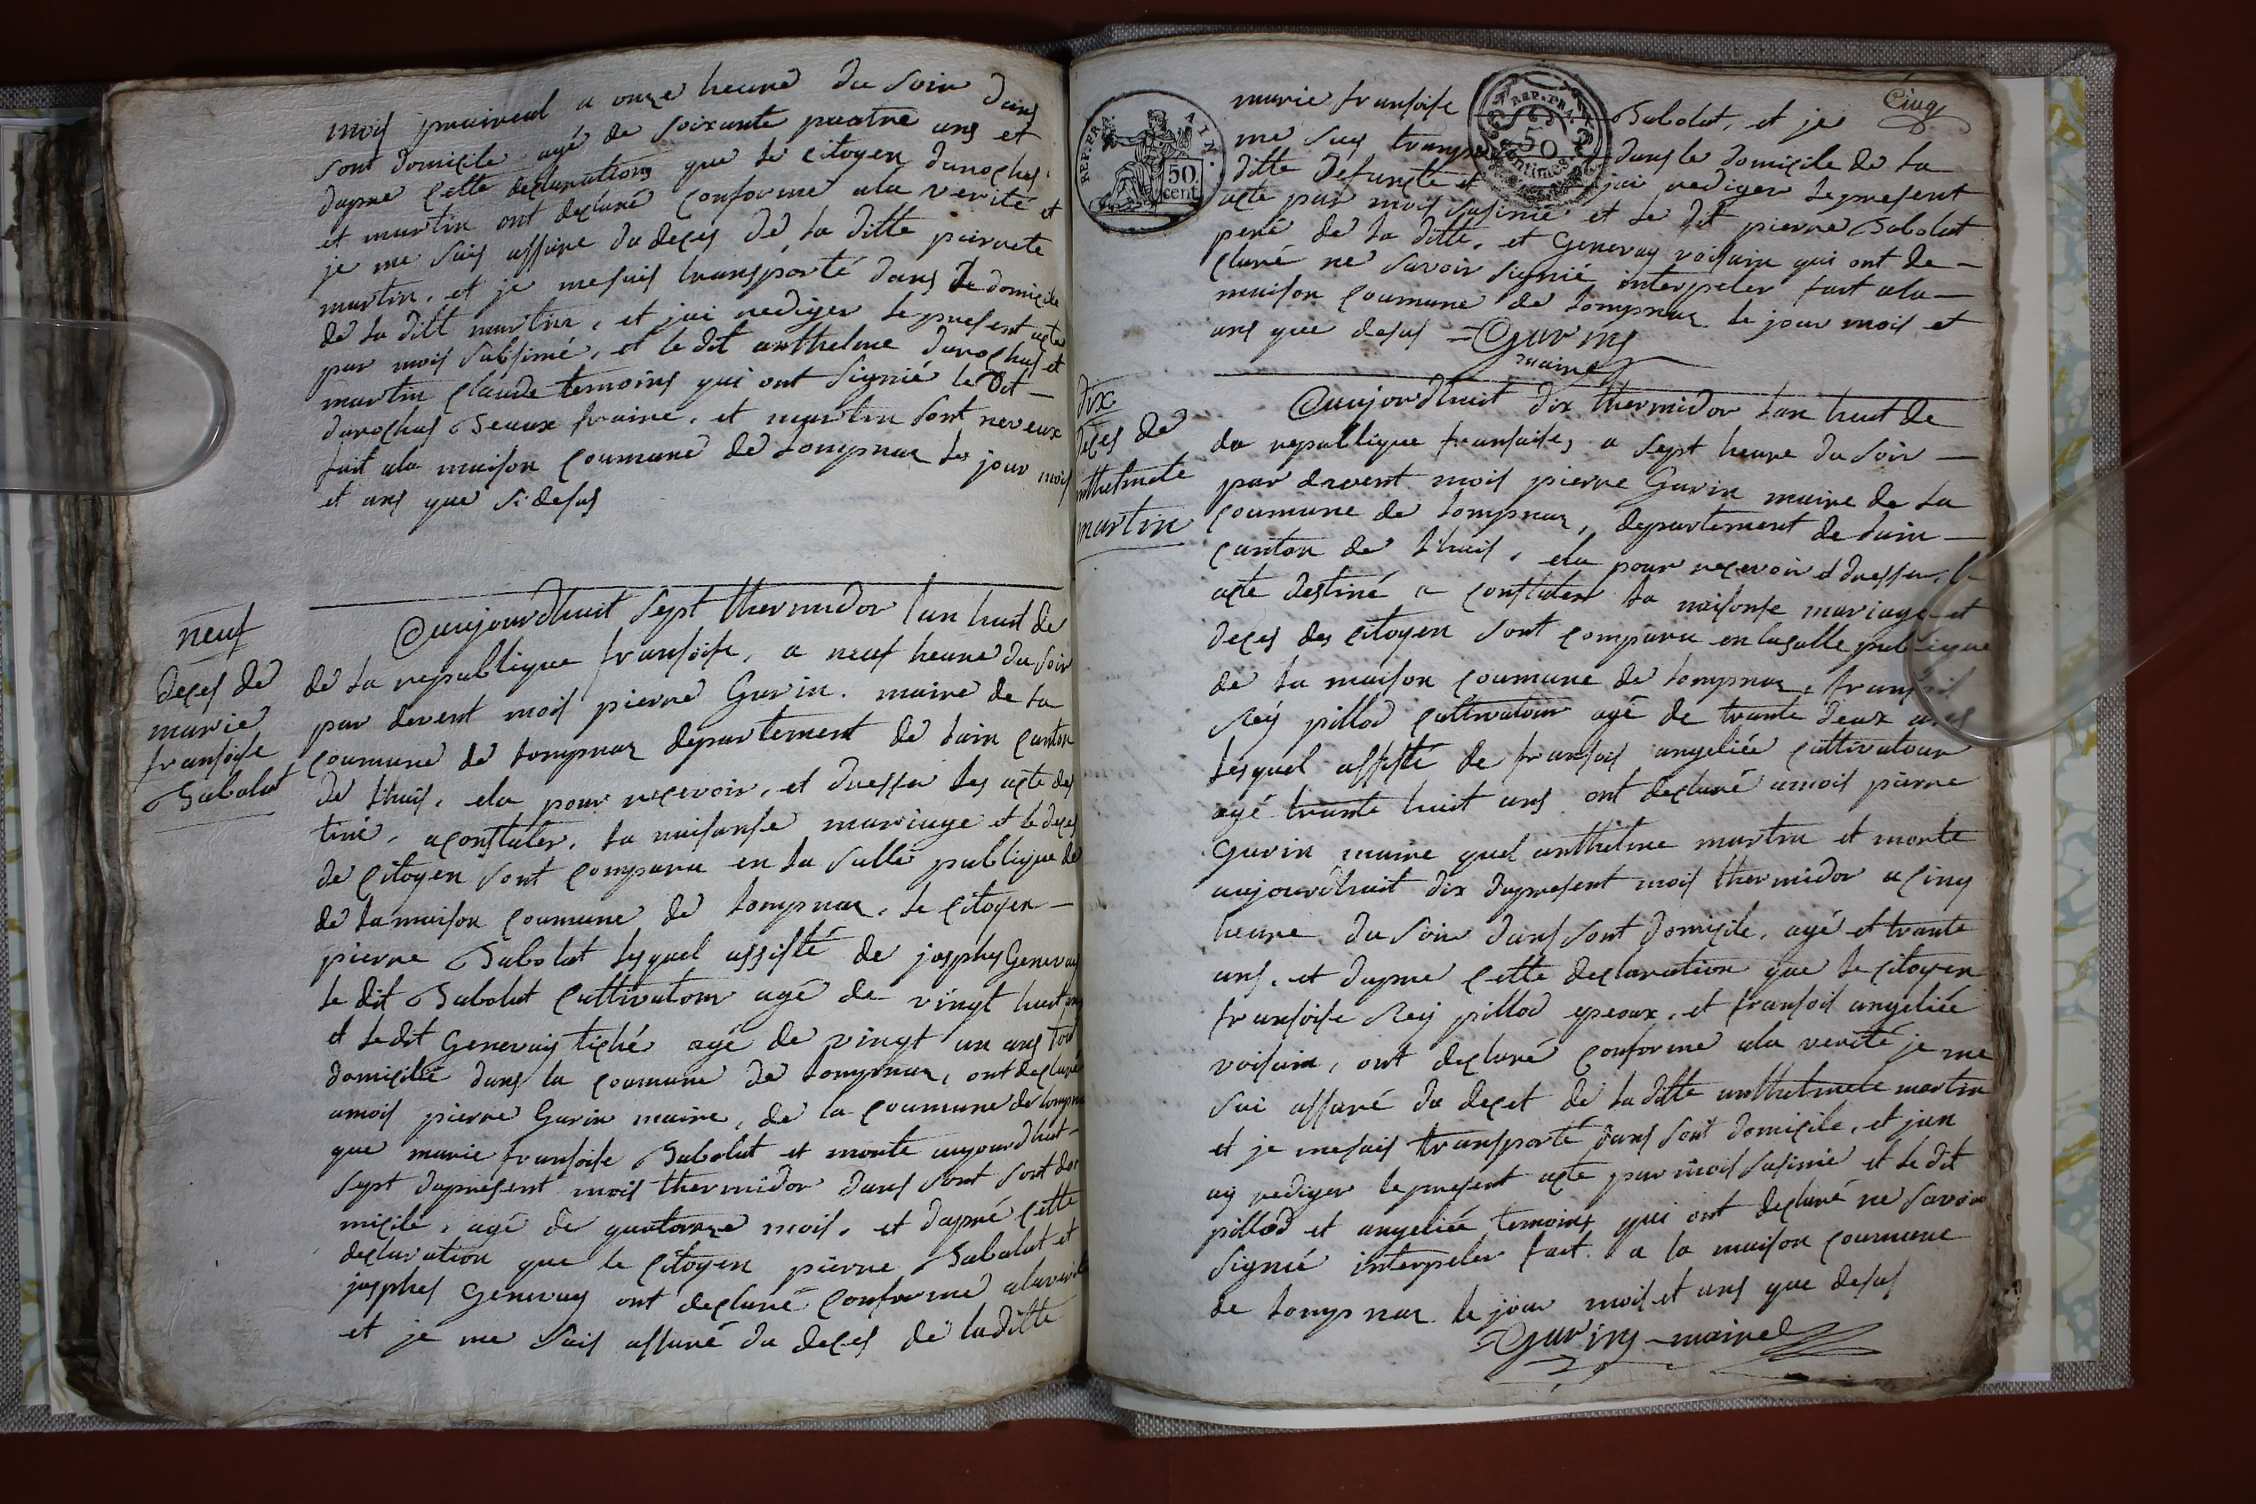 mois prairial a onze heure du soir dans
sont domicile agé de soixante quatre ans et
dapre cette declarations que le citoyen durochas
et martin ont declaré conforme ala verité et
je me suis assure du deces de la ditte pierrete
martin, et je mesuis transporté dans le domicile
de la ditt martin, et jai rediger le present acte
par mois subsimé, et le dit anthelme durochas et
martin claude temoins qui ont signié le dit
durochas beaux fraire, et martin sont neveux
fait ala maison coumune de lompnaz les jour mois
et ans que si desus
neuf
deces de
marie
fransoise
Babolat
aujourdhuit sept thermidor lan huit de
de la republique fransoise, a neuf heure du soir
par devent mois pierre Gurin. maire de la
coumune de lompnaz departement de lain canton
de lhuis, elu pour recevoir, et dresser les acte des
tiné, aconstater, la naisanse mariage et le deces
de citoyen sont comparu en la salle publique de
de la maison coumune de lompnaz, le citoyen
pierre Babolat lesquel assisté de josphes Genevay
le dit Babolat cultivatour agé de vingt huit ans
et le dit Genevay tiché agé de vingt un ans tout
domicilié dans la coumune de lompnaz, ont declaré
amois pierre Gurin maire, de la coumune de lompnaz
que marie fransoise Babolat et morte aujourdhuit
sept dupresent mois thermidor dans sont sont do
micile, agé de quatorze mois, et dapré cette
declaration que le citoyen pierre Babolat et
josphes Genevay ont declaré conforme alaverité
et je me suis assuré du deces de laditte
Cinq
REP. FRA.
50
cent.
AIN.
REP. FRA.
50
centimes
marie fransoise Babolat, et je
me suis transporté dans le domicile de la
ditte defuncte et jai rediger le present
acte par mois susimié et le dit pierre Babolat
peré de la ditte, et Genevay voisain qui ont de
claré ne savoir signié interpeler fait ala
maison coumune de lompnaz le jour mois et
ans que desus = Gurin
maire
dix
deces de
anthelmete
martin
aujordhuit dix thermidor lan huit de
da republique fransaise, a sept heure du soir
par devent mois pierre Gurin maire de la
coumune de lompnaz, departement de lain
canton de lhuis, elu pour recevoir et dresser, le
acte destiné a constater la naisonse mariage et
deces des citoyen sont comparu en lasalle publique
de la maison coumune de lompnaz, fransois
Rey pillod cultivatour agé de trante deux ans
lesquel assisté de fransois angeliée cultivatour
agé trante huit ans ont declaré amois pierre
Gurin maire quel anthelme martin et morte
aujourdhuit dix dupresent mois thermidor a cinq
heure du soir dans sont domicile, agé et trante
ans, et dapre cette declaration que le citoyen
fransoise Rey pillod epeoux, et fransois angeliée
voisain, ont declaré conforme ala verité je me
sui assuré du decet de la ditte anthelmete martin
et je mesuis transporté dans sont domicile, et jan
ay rediger le present acte par mois susimié et le dit
pillod et angeliée temoins qui ont declaré ne savoir
signié interpeler fait a la maison coumune
de lompnaz le jour mois et ans que desus
= Gurin maire